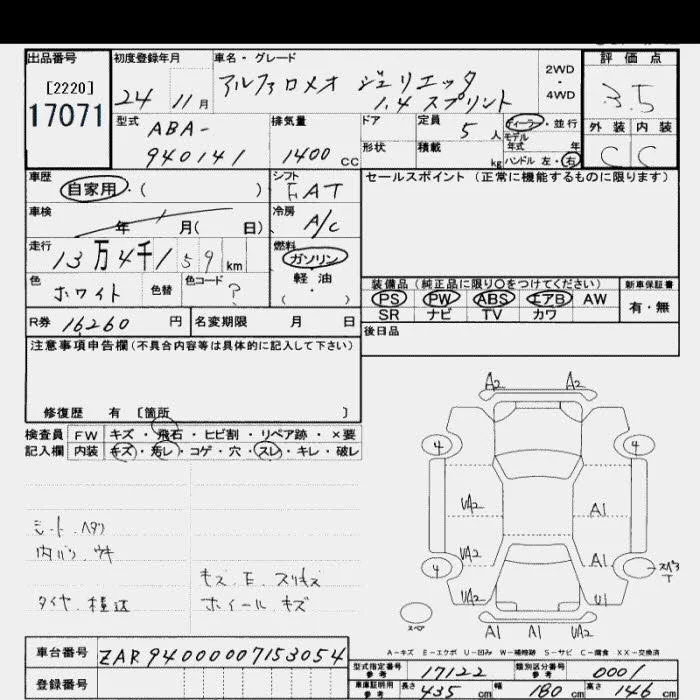 出品番号
[2220]
17071
初度登録年月
24 11月
車名・グレード
アルファロメオ ジュリエッタ
1.4 スプリント
2WD
・
4WD
評価点
3.5
外装 内装
C C
型式
ABA-
940141
排気量
1400 CC
ドア
定員 5 人
形状
積載 kg
ディーラー・並行
モデル年式 年
ハンドル 左・右
車歴
自家用・( )
シフト
FAT
セールスポイント(正常に機能するものに限ります)
車検
年 月( 日)
冷房
A/C
走行
13万4千159km
燃料
ガソリン
軽油
( ・ )
色
ホワイト
色替
色コード
?
装備品(純正品に限り○をつけてください)
PS PW ABS エアB AW
SR ナビ TV カワ
新車保証書
有・無
R券 16260 円
名変期限 月 日
後日品
注意事項申告欄(不具合内容等は具体的に記入して下さい)
修復歴 有 〔箇所 〕
検査員 FW キズ・飛石・ヒビ割・リペア跡・×要
記入欄 内装 キズ・汚レ・コゲ・穴・スレ・キレ・破レ
シート ヘタリ
内バリ ウキ
キズ.E.スリキズ
ホイール キズ
A2 A2
4 4
UA2 A1
UA2 A1
4 スペアT
UA2 U1
スペア
A1 A1 UA2
A-キズ E-エクボ U-凹み W-補修跡 S-サビ C-腐食 XX-交換済
車台番号 ZAR94000007153054
登録番号
型式指定番号 参考 17122
類別区分番号 参考 0001
車庫証明用 参考 長さ 435 cm 幅 180 cm 高さ 146 cm